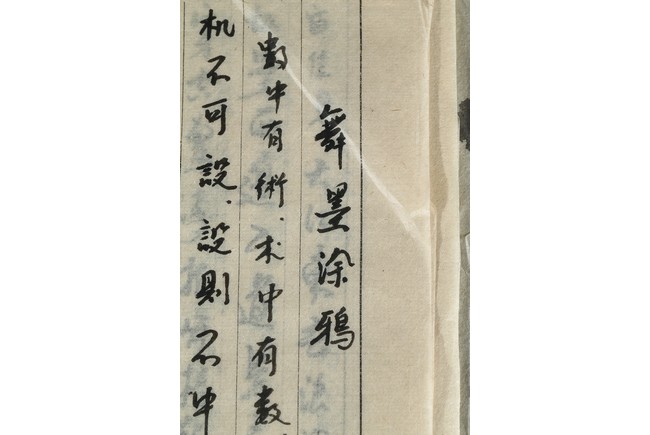 舞墨涂鸦
数中有術.术中有数.
机不可設.設則不中